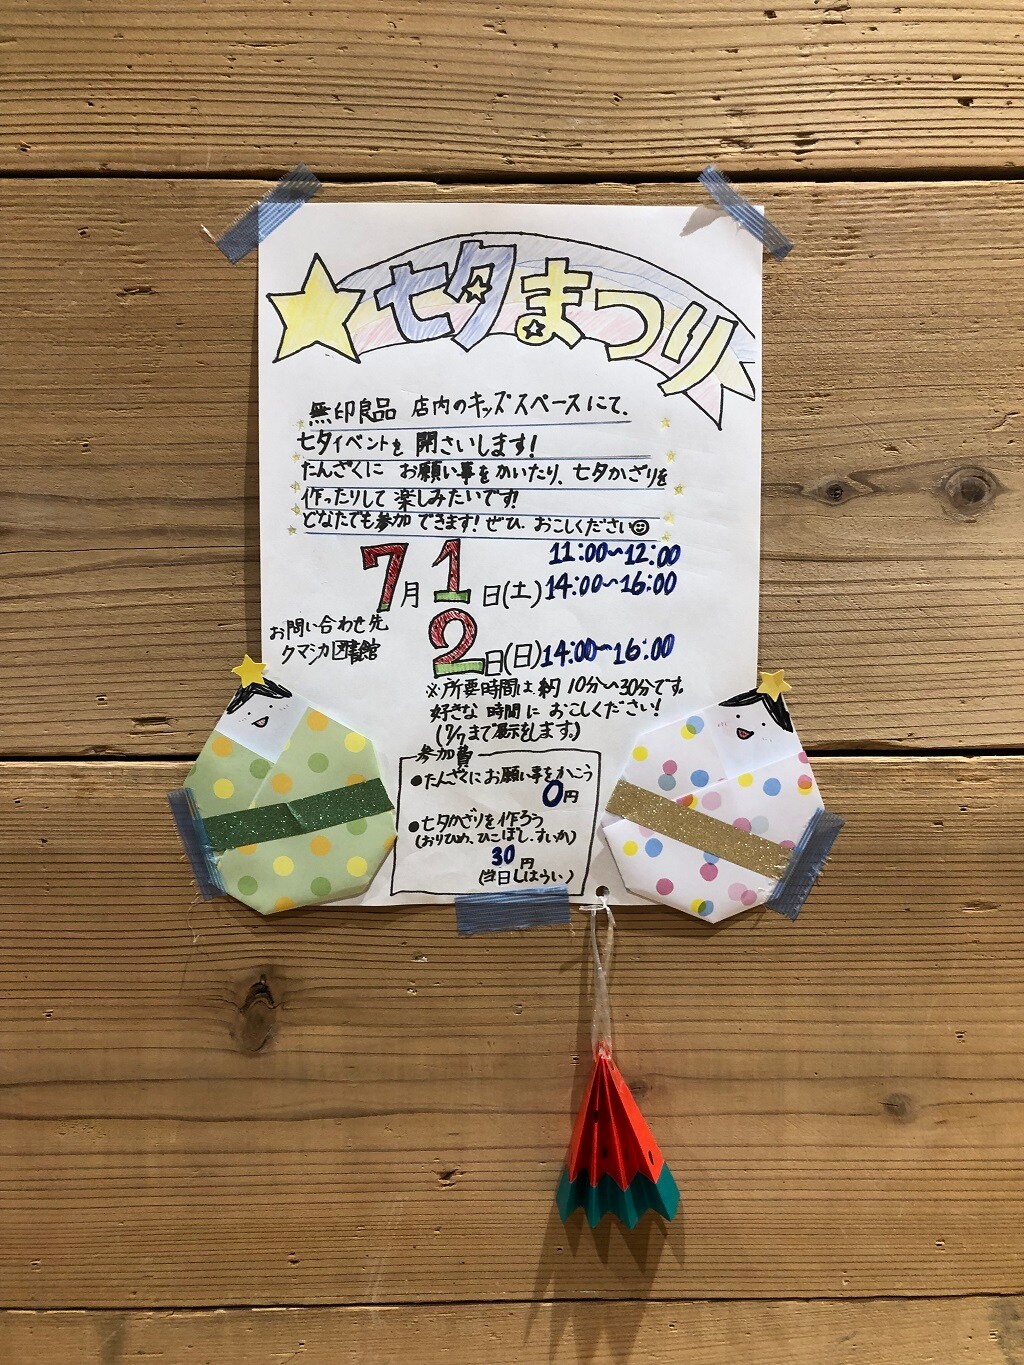 七夕まつり
無印良品 店内のキッズスペースにて、
七夕イベントを 開さいします!
たんざくに お願い事をかいたり、七夕かざりを
作ったりして 楽しみたいです!
どなたでも参加できます!ぜひ、おこしください☺
7月1日(土) 11:00~12:00
14:00~16:00
2日(日) 14:00~16:00
お問い合わせ先
クマシカ図書館
※所要時間は、約10分~30分です。
好きな 時間に おこしください!
(7/7まで展示をします。)
参加費
●たんざくにお願い事をかこう
0円
●七夕かざりを作ろう
(おりひめ、ひこぼし、すいか)
30円
(当日しはらい)